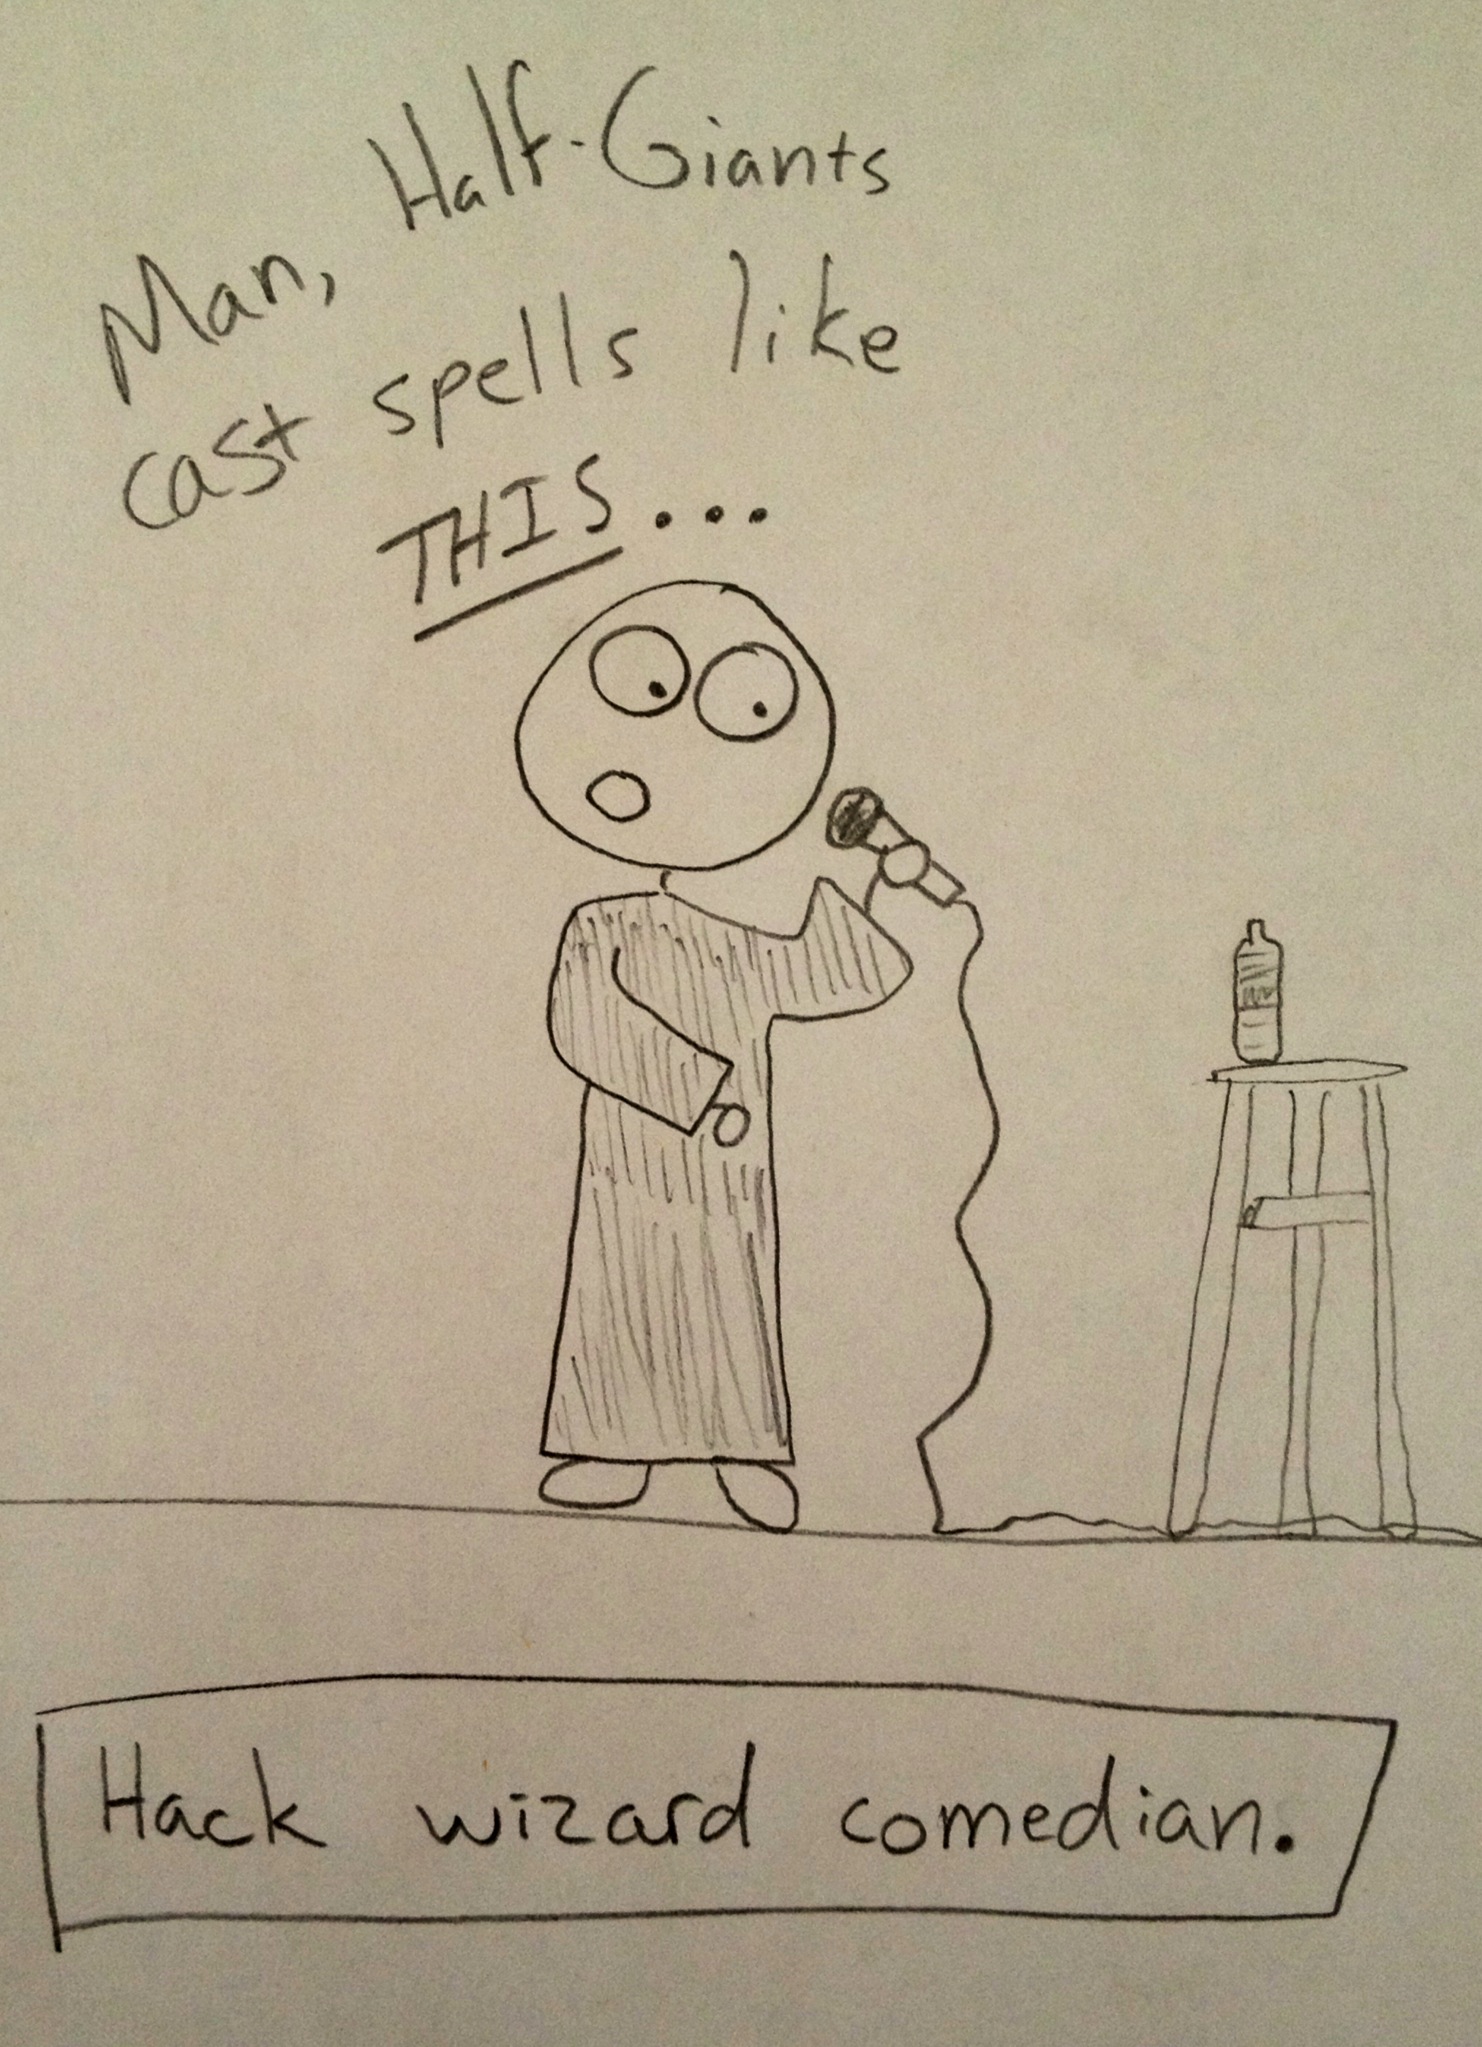 Man, Half-Giants
cast spells like
THIS...
Hack wizard comedian.